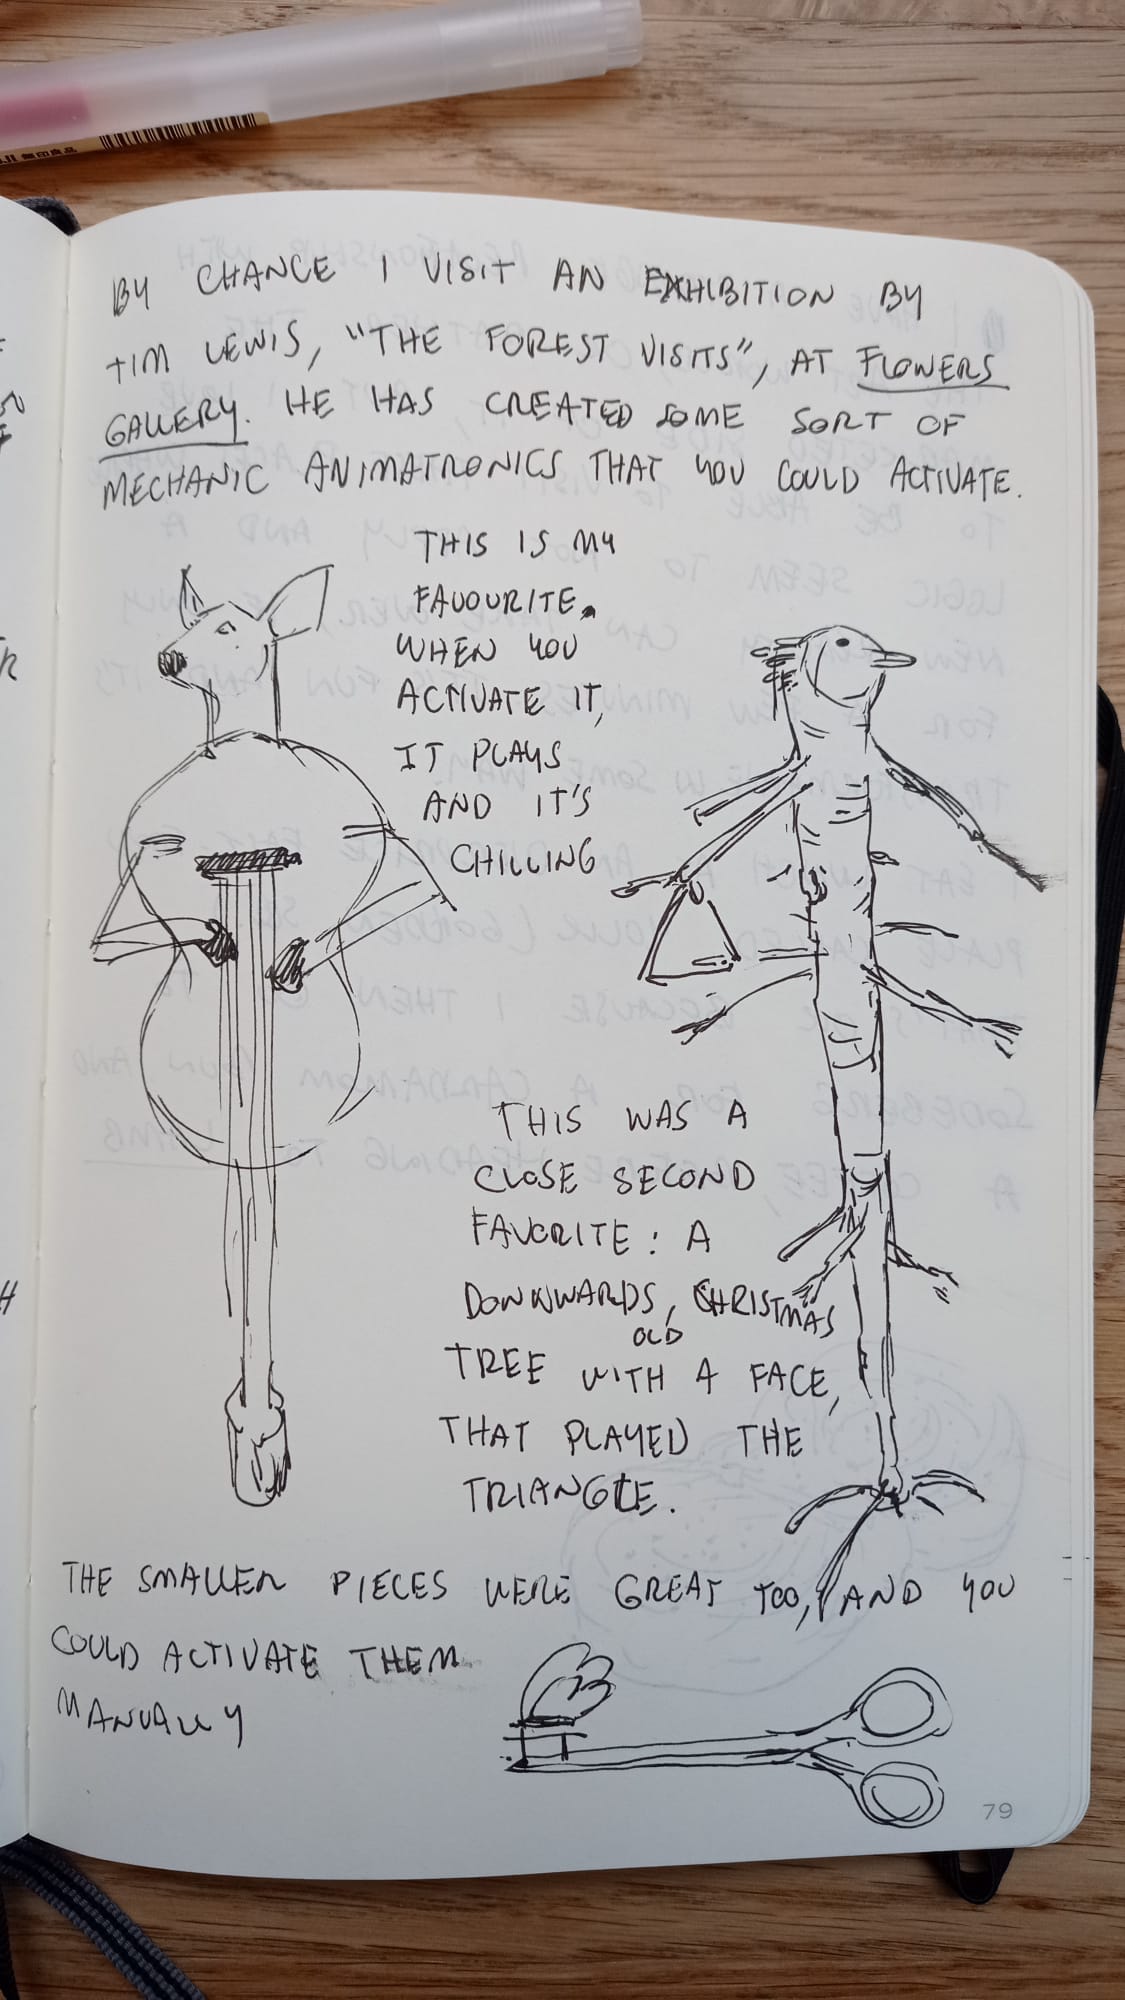 無印良品
BY CHANCE I VISIT AN EXHIBITION BY
TIM LEWIS, "THE FOREST VISITS", AT FLOWERS
GALLERY. HE HAS CREATED SOME SORT OF
MECHANIC ANIMATRONICS THAT YOU COULD ACTIVATE.
THIS IS MY
FAVOURITE.
WHEN YOU
ACTIVATE IT,
IT PLAYS
AND IT'S
CHILLING
THIS WAS A
CLOSE SECOND
FAVORITE: A
DOWNWARDS, CHRISTMAS
OLD
TREE WITH A FACE,
THAT PLAYED THE
TRIANGLE.
THE SMALLER PIECES WERE GREAT TOO, AND YOU
COULD ACTIVATE THEM
MANUALLY
79